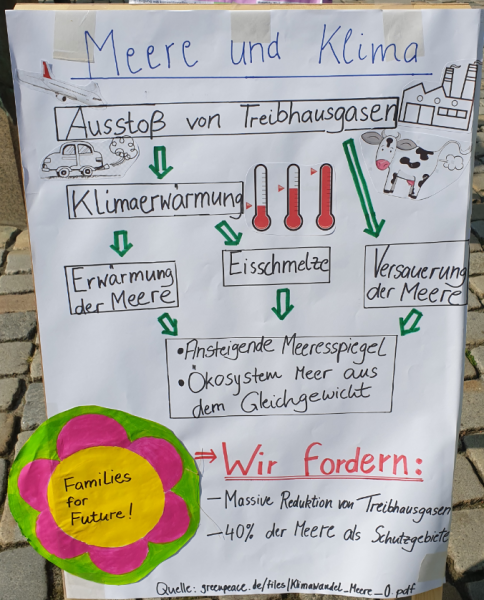 Meere und Klima
Ausstoß von Treibhausgasen
Klimaerwärmung
Erwärmung
der Meere
Eisschmelze
Versauerung
der Meere
•Ansteigende Meeresspiegel
•Ökosystem Meer aus
dem Gleichgewicht
⇒ Wir fordern:
– Massive Reduktion von Treibhausgasen
– 40% der Meere als Schutzgebiete
Families
for
Future!
Quelle: greenpeace.de/files/Klimawandel_Meere_0.pdf